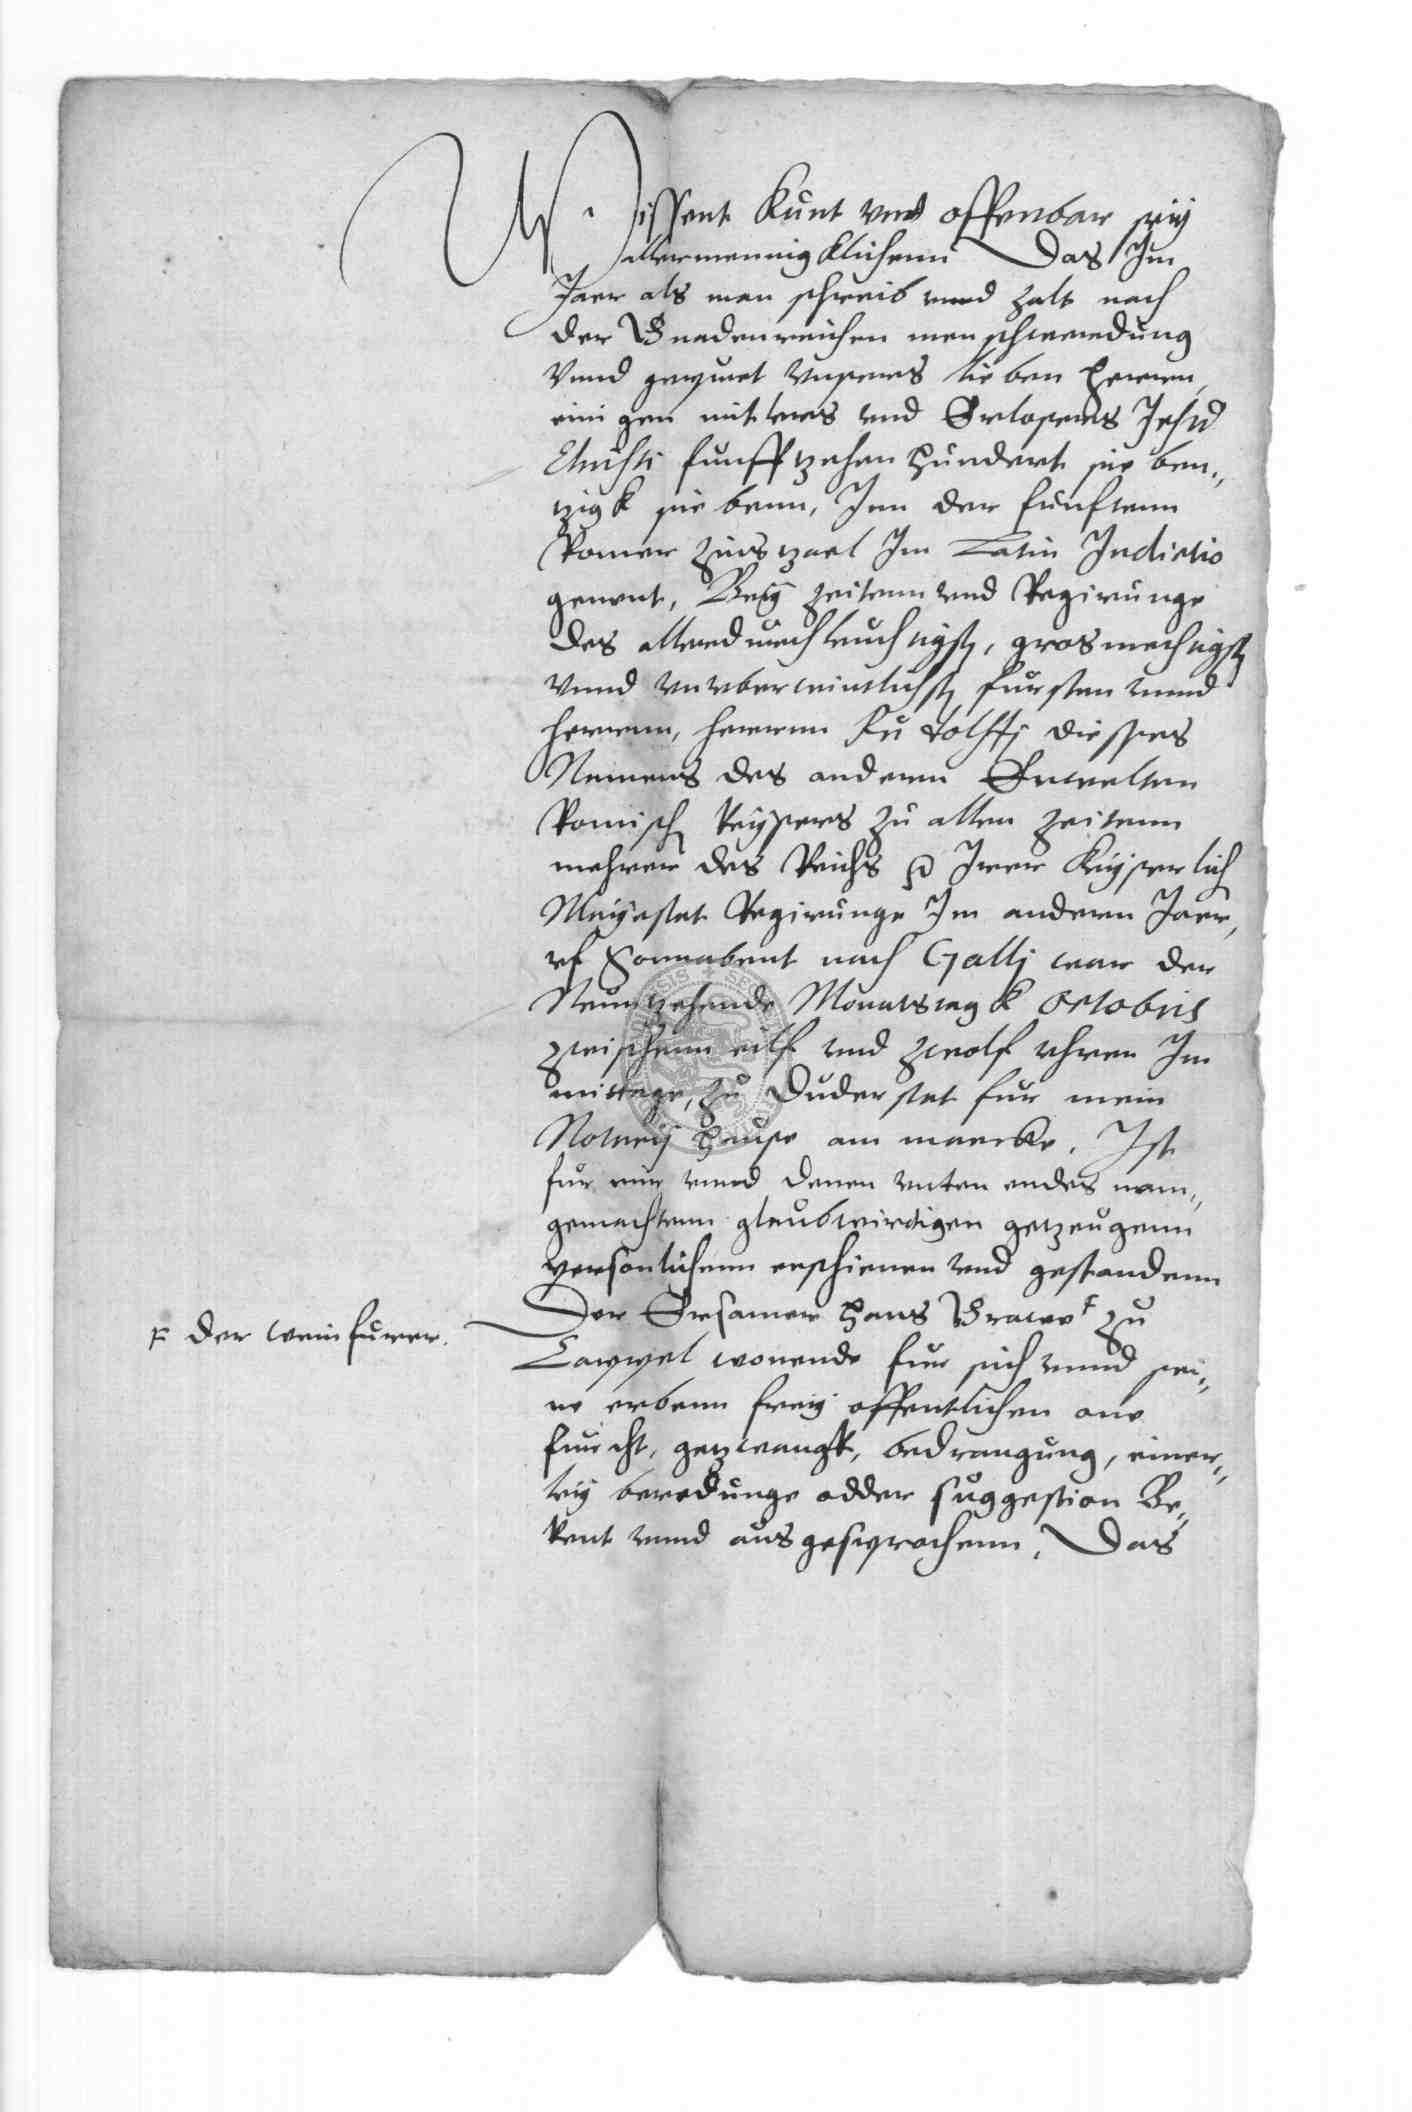 Wissent Kunt vnd offenbar seiy
allermennigklichenn Das Im
Jaer als man schreib vnnd zalt nach
der Gnadenreichen menschwerdung
Vnnd gepurt vnsers lieben Herren,
einigen mitlers vnd Erlosers Jesu
Christi funfftzehen Hundert sieben„
tzigk siebenn, Inn der funftenn
Romer Zinstzael Im Latin Indictio
genent, Beÿ Zeitenn vnd Regirunge
des allerdurchleuchtigst, grosmechtigst
Vnnd vnvberwintlichst fursten vnnd
herrenn, herrenn Rudolffj diesses
Namens des anderen Erwelten
Romisch Keÿsers zu allen Zeitenn
mehrer des Reichs Irer Keÿserlich
Maÿestat Regirunge Im andern Jaer,
vf Sonnabent nach Gallj war der
Neuntzehende Monatstagk Octobris
zwischenn eilf vnd zwolf vhren Im
mittage, zu Duderstat fur mein
Notarÿ Hause am marckte. Ist
fur mir vnnd denen vnten endes nam„
gemachtenn glaubwirdigen getzeugenn
personlichenn erschienen vnd gestandenn
Der Ersamer Hans Grawe F zu
F der weinfurer.
Cappel wonende fur sich vnnd sei„
ne erbenn freÿ offentlichen one
furcht, getzwangk, bedrangung, einer„
leÿ beredunge odder suggestion Be„
kent vnnd ausgesprochenn, Das